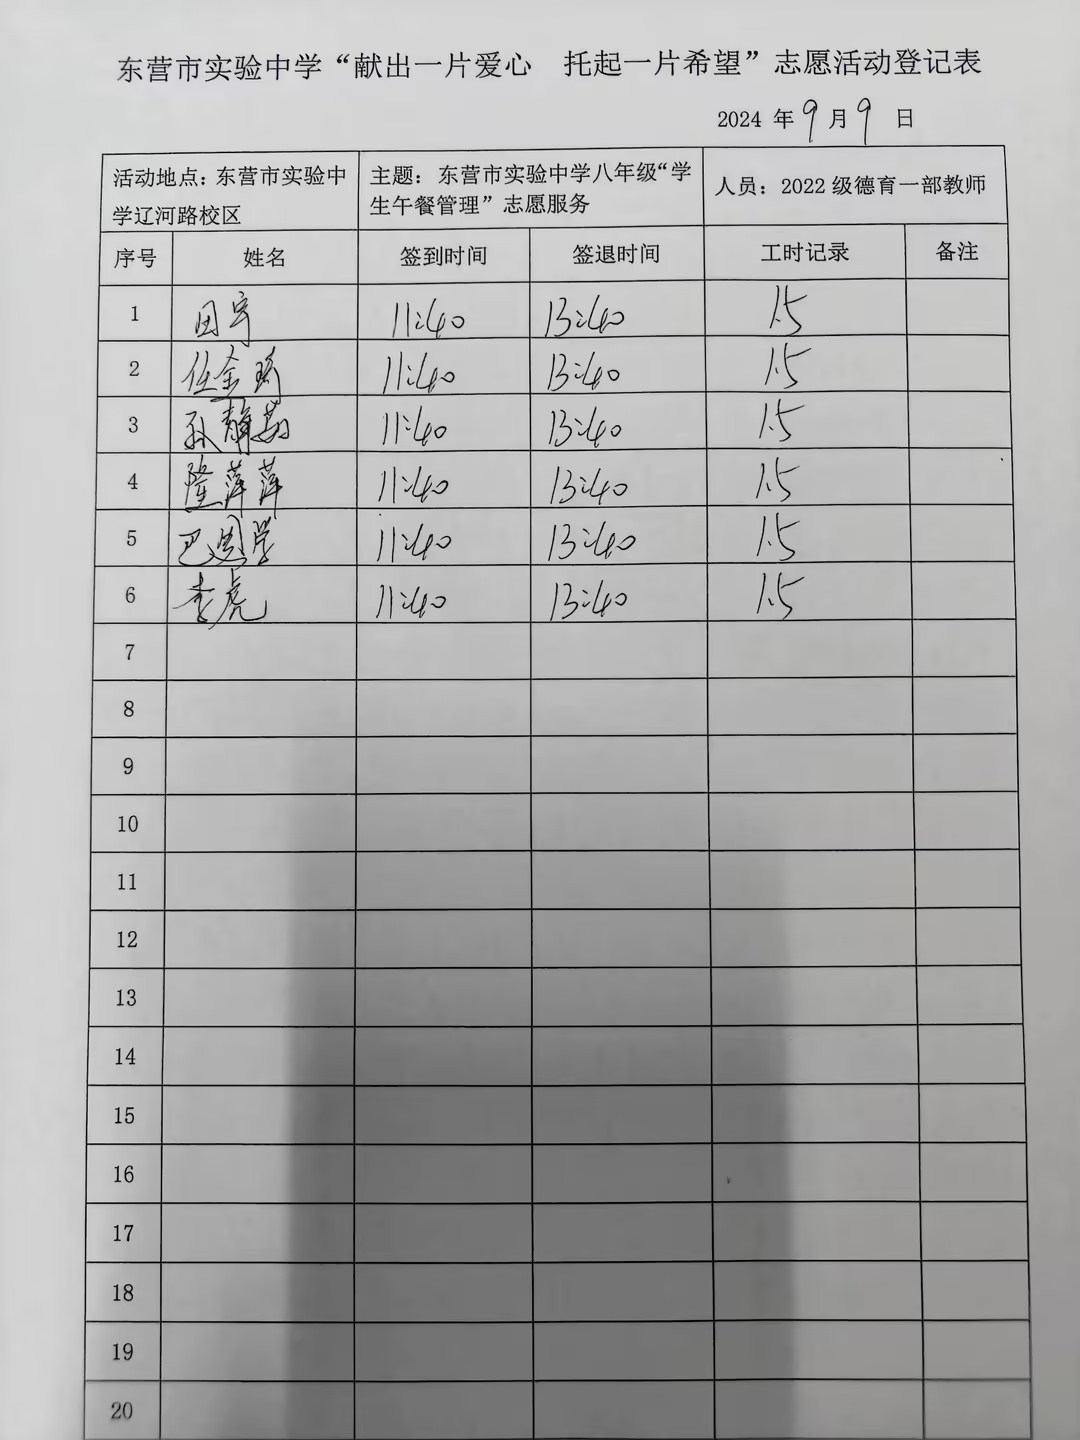 东营市实验中学“献出一片爱心 托起一片希望”志愿活动登记表
2024 年 9 月 9 日
活动地点：东营市实验中学辽河路校区 主题：东营市实验中学八年级“学生午餐管理”志愿服务 人员：2022 级德育一部教师
序号 姓名 签到时间 签退时间 工时记录 备注
1 田宇 11:40 13:40 1.5
2 任金 11:40 13:40 1.5
3 孙静茹 11:40 13:40 1.5
4 隆萍萍 11:40 13:40 1.5
5 巴国学 11:40 13:40 1.5
6 李虎 11:40 13:40 1.5
7
8
9
10
11
12
13
14
15
16
17
18
19
20